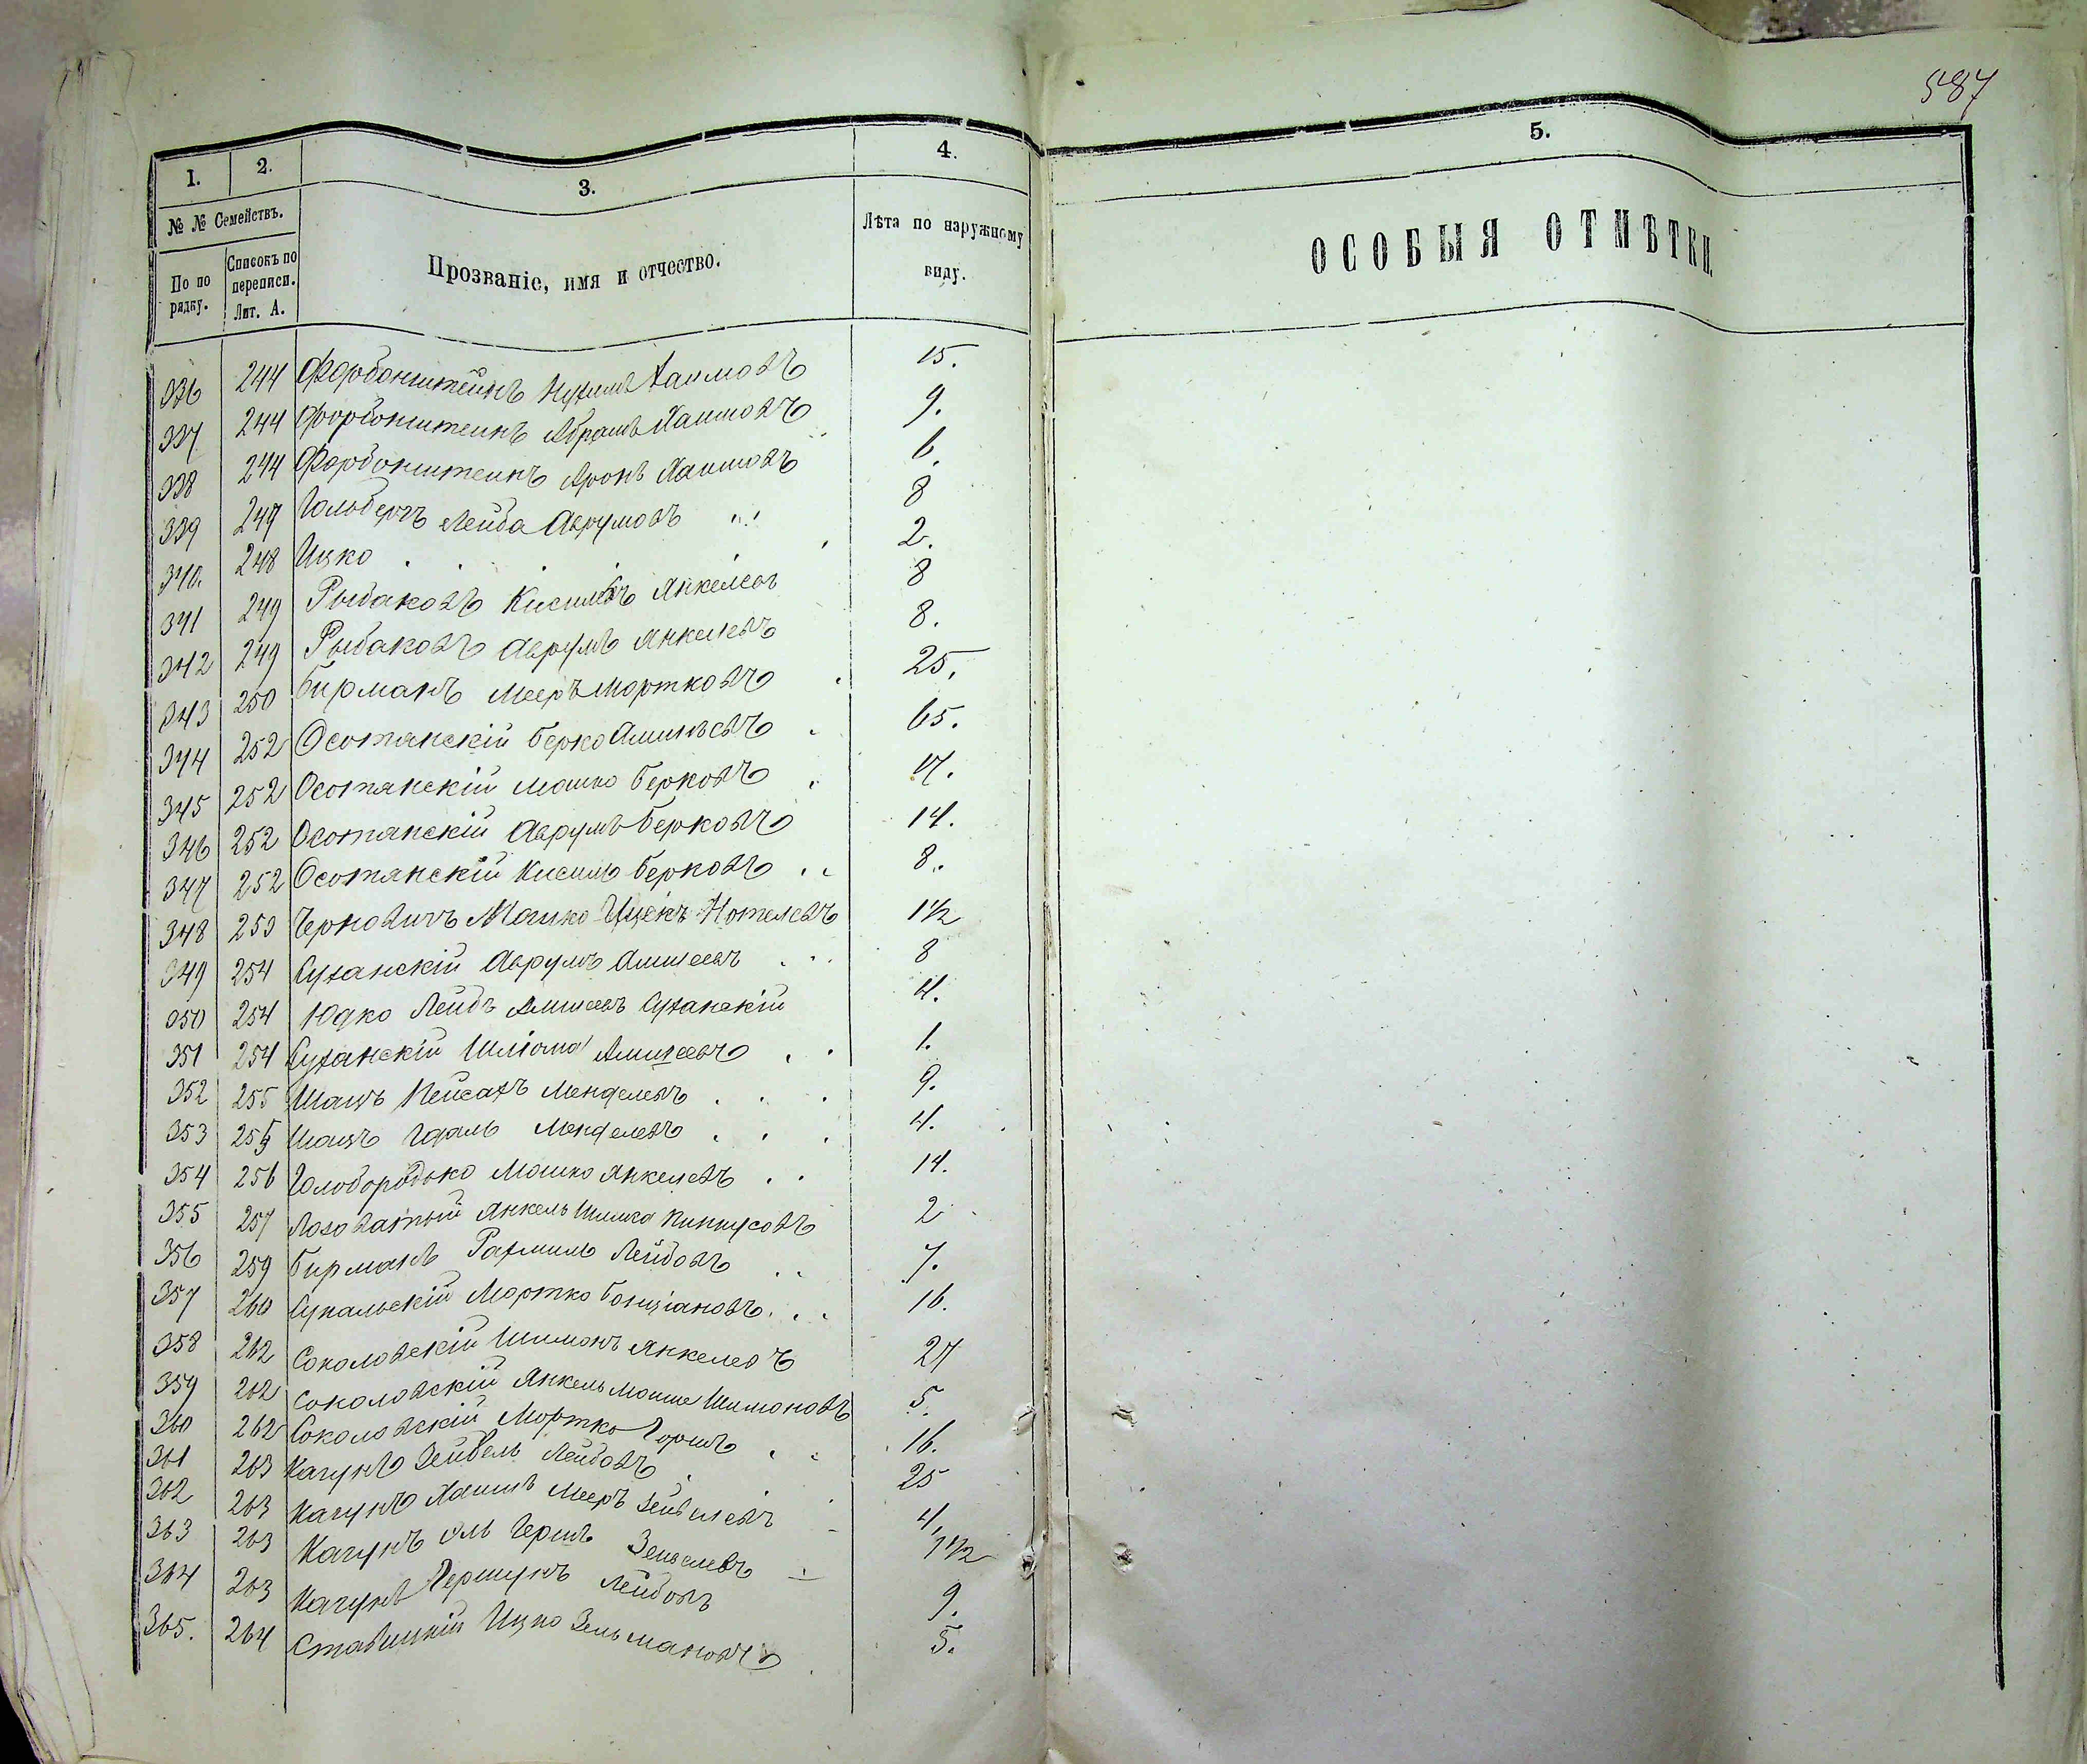 587
1. 2. 3. 4. 5.
№ № Семействъ.
По по рядку.
Списокъ по переписи. Лит. А.
Прозваніе, имя и отчество.
Лѣта по наружному виду.
ОСОБЫЯ ОТМѢТКИ.
336 244 Форбонштейнъ Нухимъ Хаимовъ 15.
337 244 Форбонштеинъ Абрамъ Хаимовъ 9.
338 244 Форбонштеинъ Аронъ Хаимовъ 6.
339 247 Гольбергъ Лейба Аврумовъ 8
340. 248 Ицко 2.
341 249 Рыбаковъ Кисилъ Янкелевъ 8
342 249 Рыбаковъ Аврумъ Янкелевъ 8.
343 250 Бирманъ Мееръ Мортковъ 25.
344 252 Осотянскій Берко 65.
345 252 Осотянскій Мошко Берковъ 17.
346 252 Осотянскій Аврумъ Берковъ 14.
347 252 Осотянскій Кисиль Берковъ 8.
348 253 Черновичъ Мошко Ицекъ Нотелевъ 1½
349 254 Суханскій Аврумъ 8
350 254 Юдко Лейбъ Суханскій 4.
351 254 Суханскій Шліома 1.
352 255 Шацъ Пейсахъ Менделевъ 9.
353 255 Шацъ Гдаль Менделевъ 4.
354 256 Голобородько Мошко Янкелевъ 14.
355 257 Лозоватый Янкель Шлима Пинкусовъ 2
356 259 Бирманъ Рахмиль Лейбовъ 7.
357 260 Сукальскій Мортко Бенціановъ 16.
358 262 Соколовскій Шимонъ Янкелевъ 27
359 262 Соколовскій Янкель Моише Шимоновъ 5.
360 262 Соколовскій Мортко 16.
361 263 Кагунъ Зейвель Лейбовъ 25
362 263 Кагунъ Хаимъ Мееръ Зейвелевъ 4.
363 263 Кагунъ Гершъ Зейвелевъ 1½
364 263 Кагунъ Гершунъ Лейбовъ 9.
365. 264 Ставицкій Ицко Зельмановъ 5.